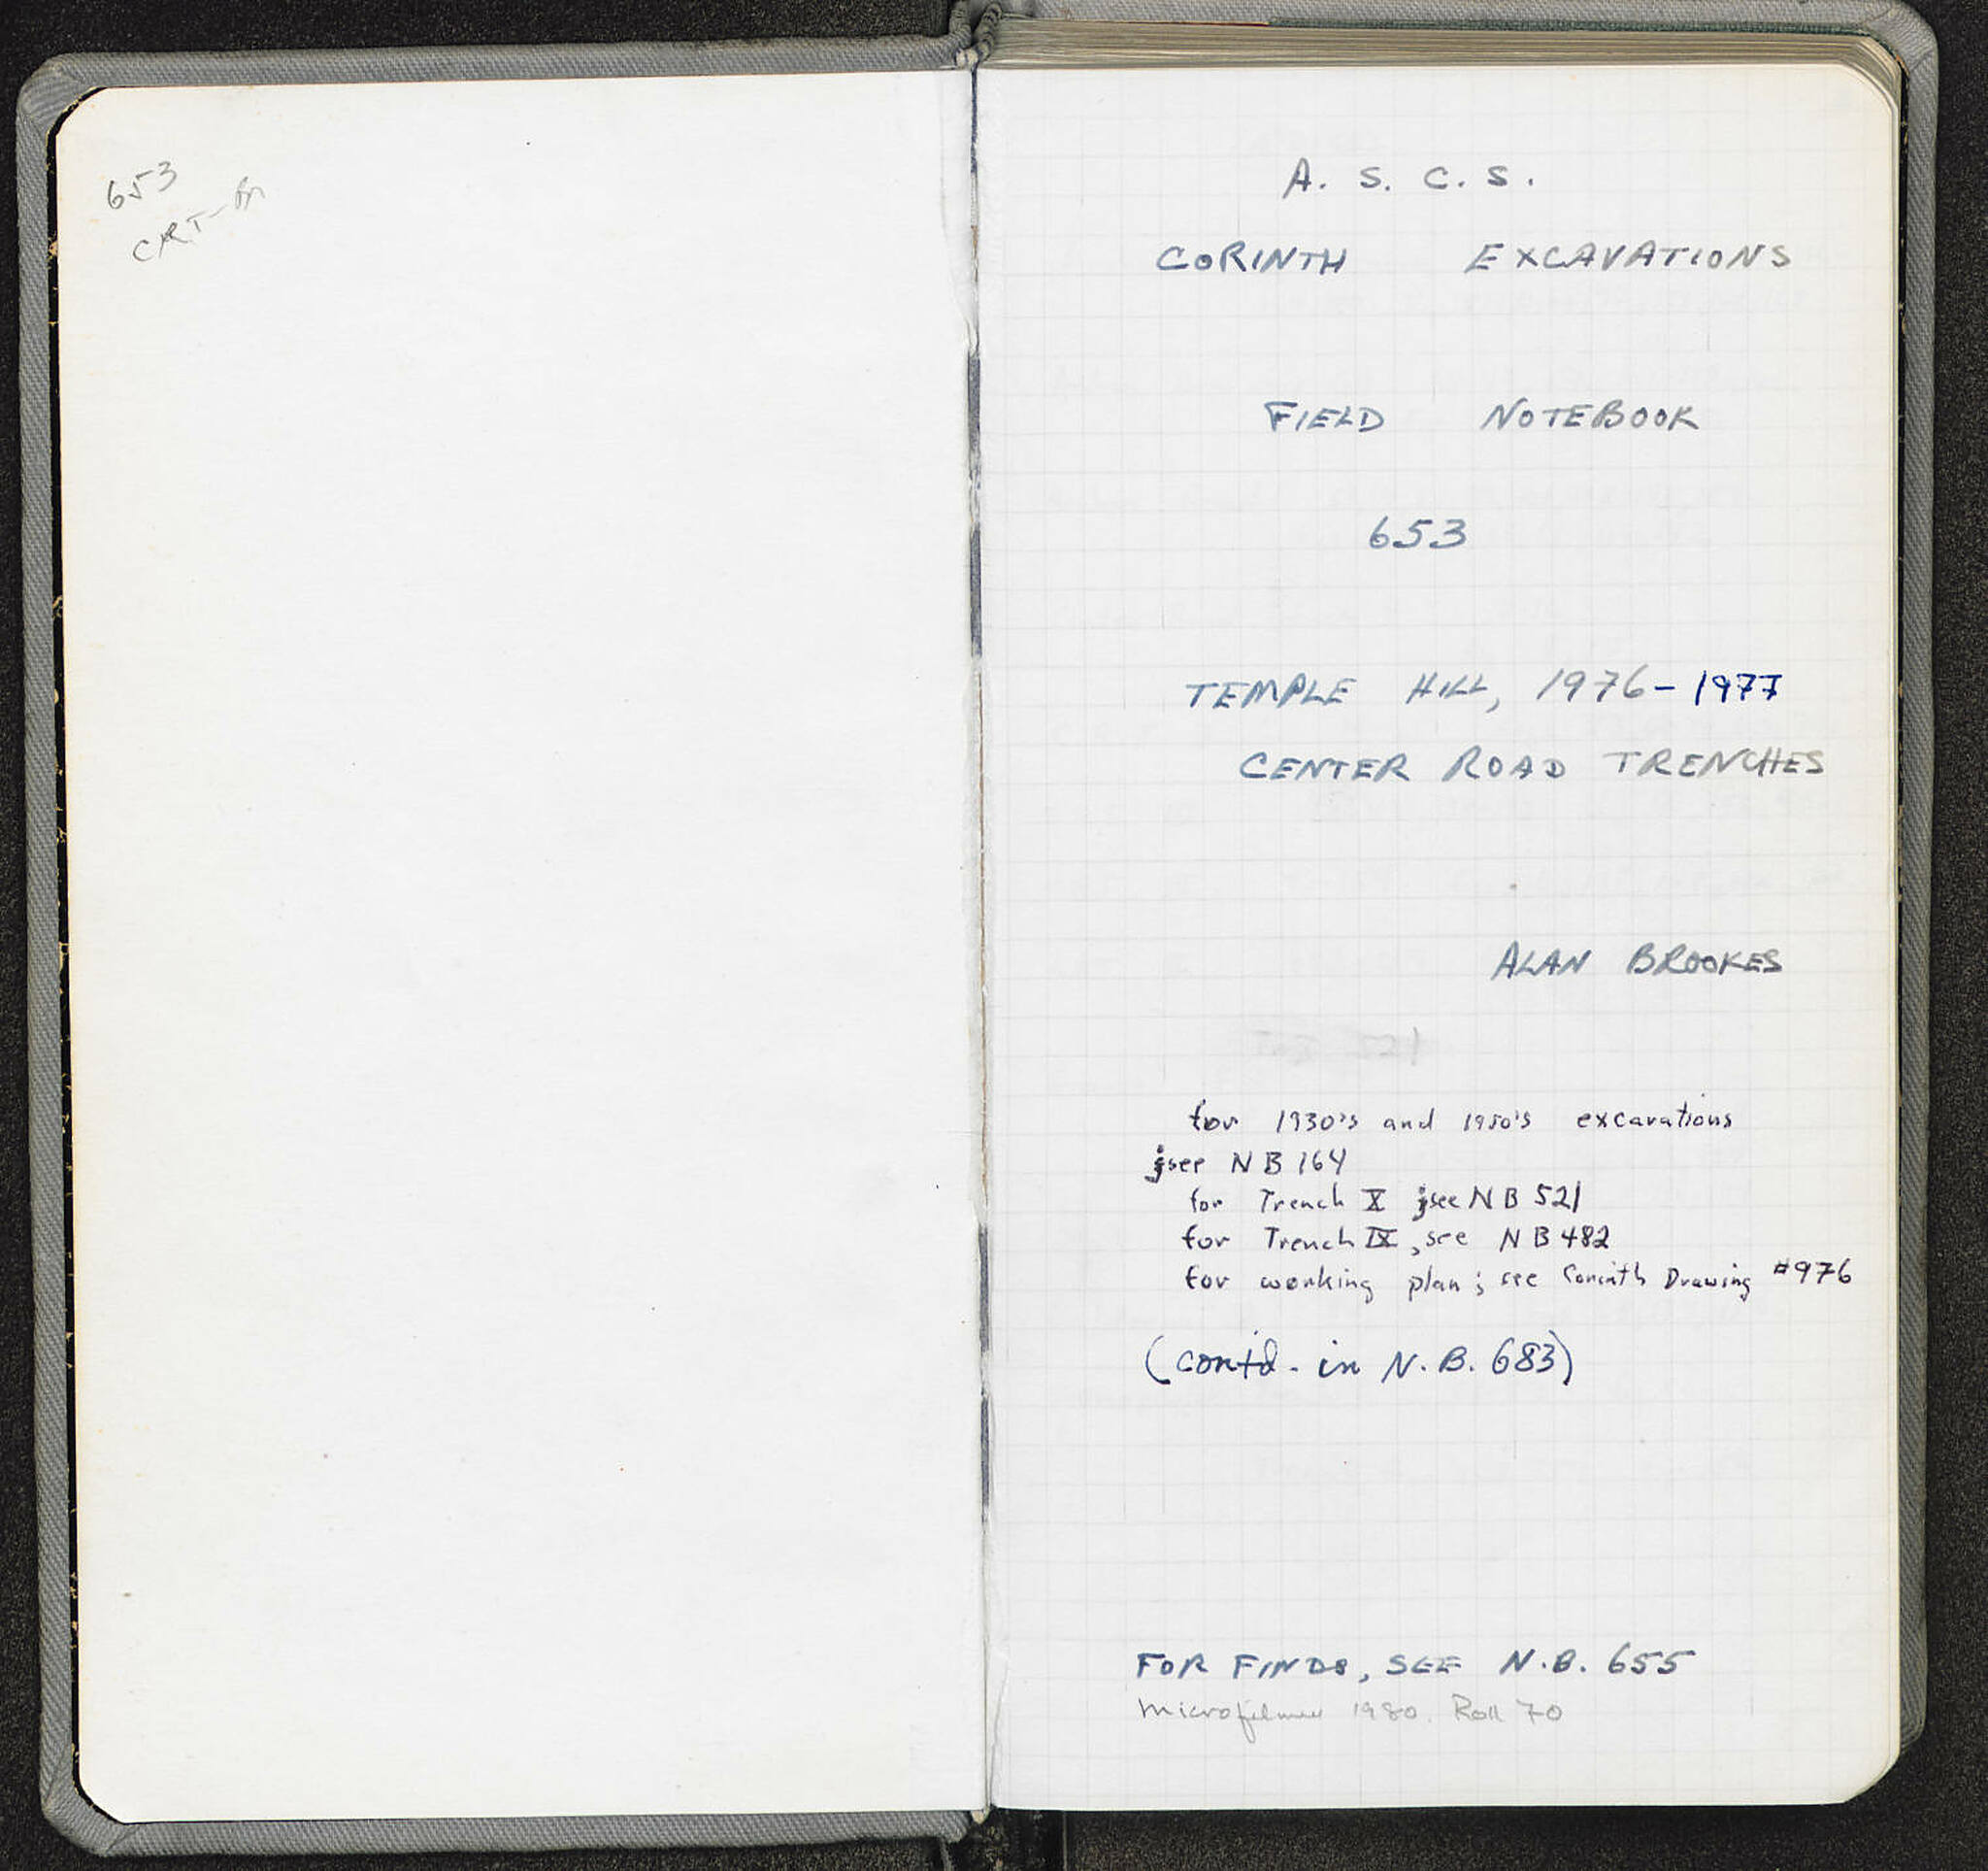 653
CART-
A. S. C. S.
CORINTH EXCAVATIONS
FIELD NOTEBOOK
653
TEMPLE HILL, 1976-1977
CENTER ROAD TRENCHES
ALAN BROOKES
521
for 1930's and 1950's excavations
;see NB 164
for Trench X ;see NB 521
for Trench IX, see NB 482
for working plan; see Corinth Drawing #976
(cont'd. in N.B. 683)
FOR FINDS, SEE N.B. 655
Microfilmed 1980. Roll 70